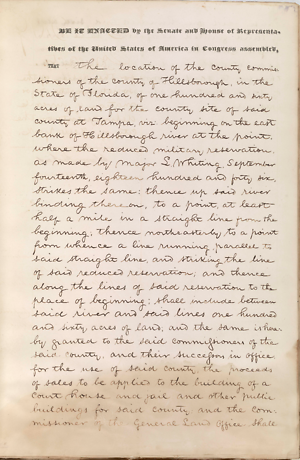 BE IT ENACTED by the Senate and House of Representa-
tives of the United States of America in Congress assembled,
THAT The location of the county commis
sioners of the county of Hillsborough, in the
State of Florida, of one hundred and sixty
acres of land for the county site of said
county at Tampa, viz beginning on the east
bank of Hillsborough river at the point
where the reduced military reservation
as made by Major L Whiting September
fourteenth, eighteen hundred and forty six,
strikes the same; thence up said river
binding thereon, to a point, at least
half a mile in a straight line from the
beginning; thence northeasterly to a point
from whence a line running parallel to
said straight line, and striking the line
of said reduced reservation, and thence
along the lines of said reservation to the
place of beginning; shall include between
said river and said lines one hundred
and sixty acres of land; and the same is here
by granted to the said commissioners of the
said county, and their successors in office
for the use of said county the proceeds
of sales to be applied to the building of a
court house and jail and other public
buildings for said county and the com
missioner of the General Land Office shall